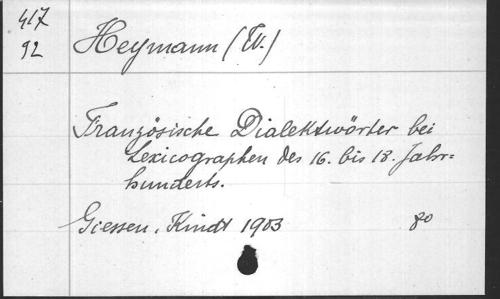 417
92
Heymann (W.)
Französische Dialektwörter bei
Lexicographen des 16. bis 18. Jahr=
hunderts.
Giessen, Kindt 1903 80